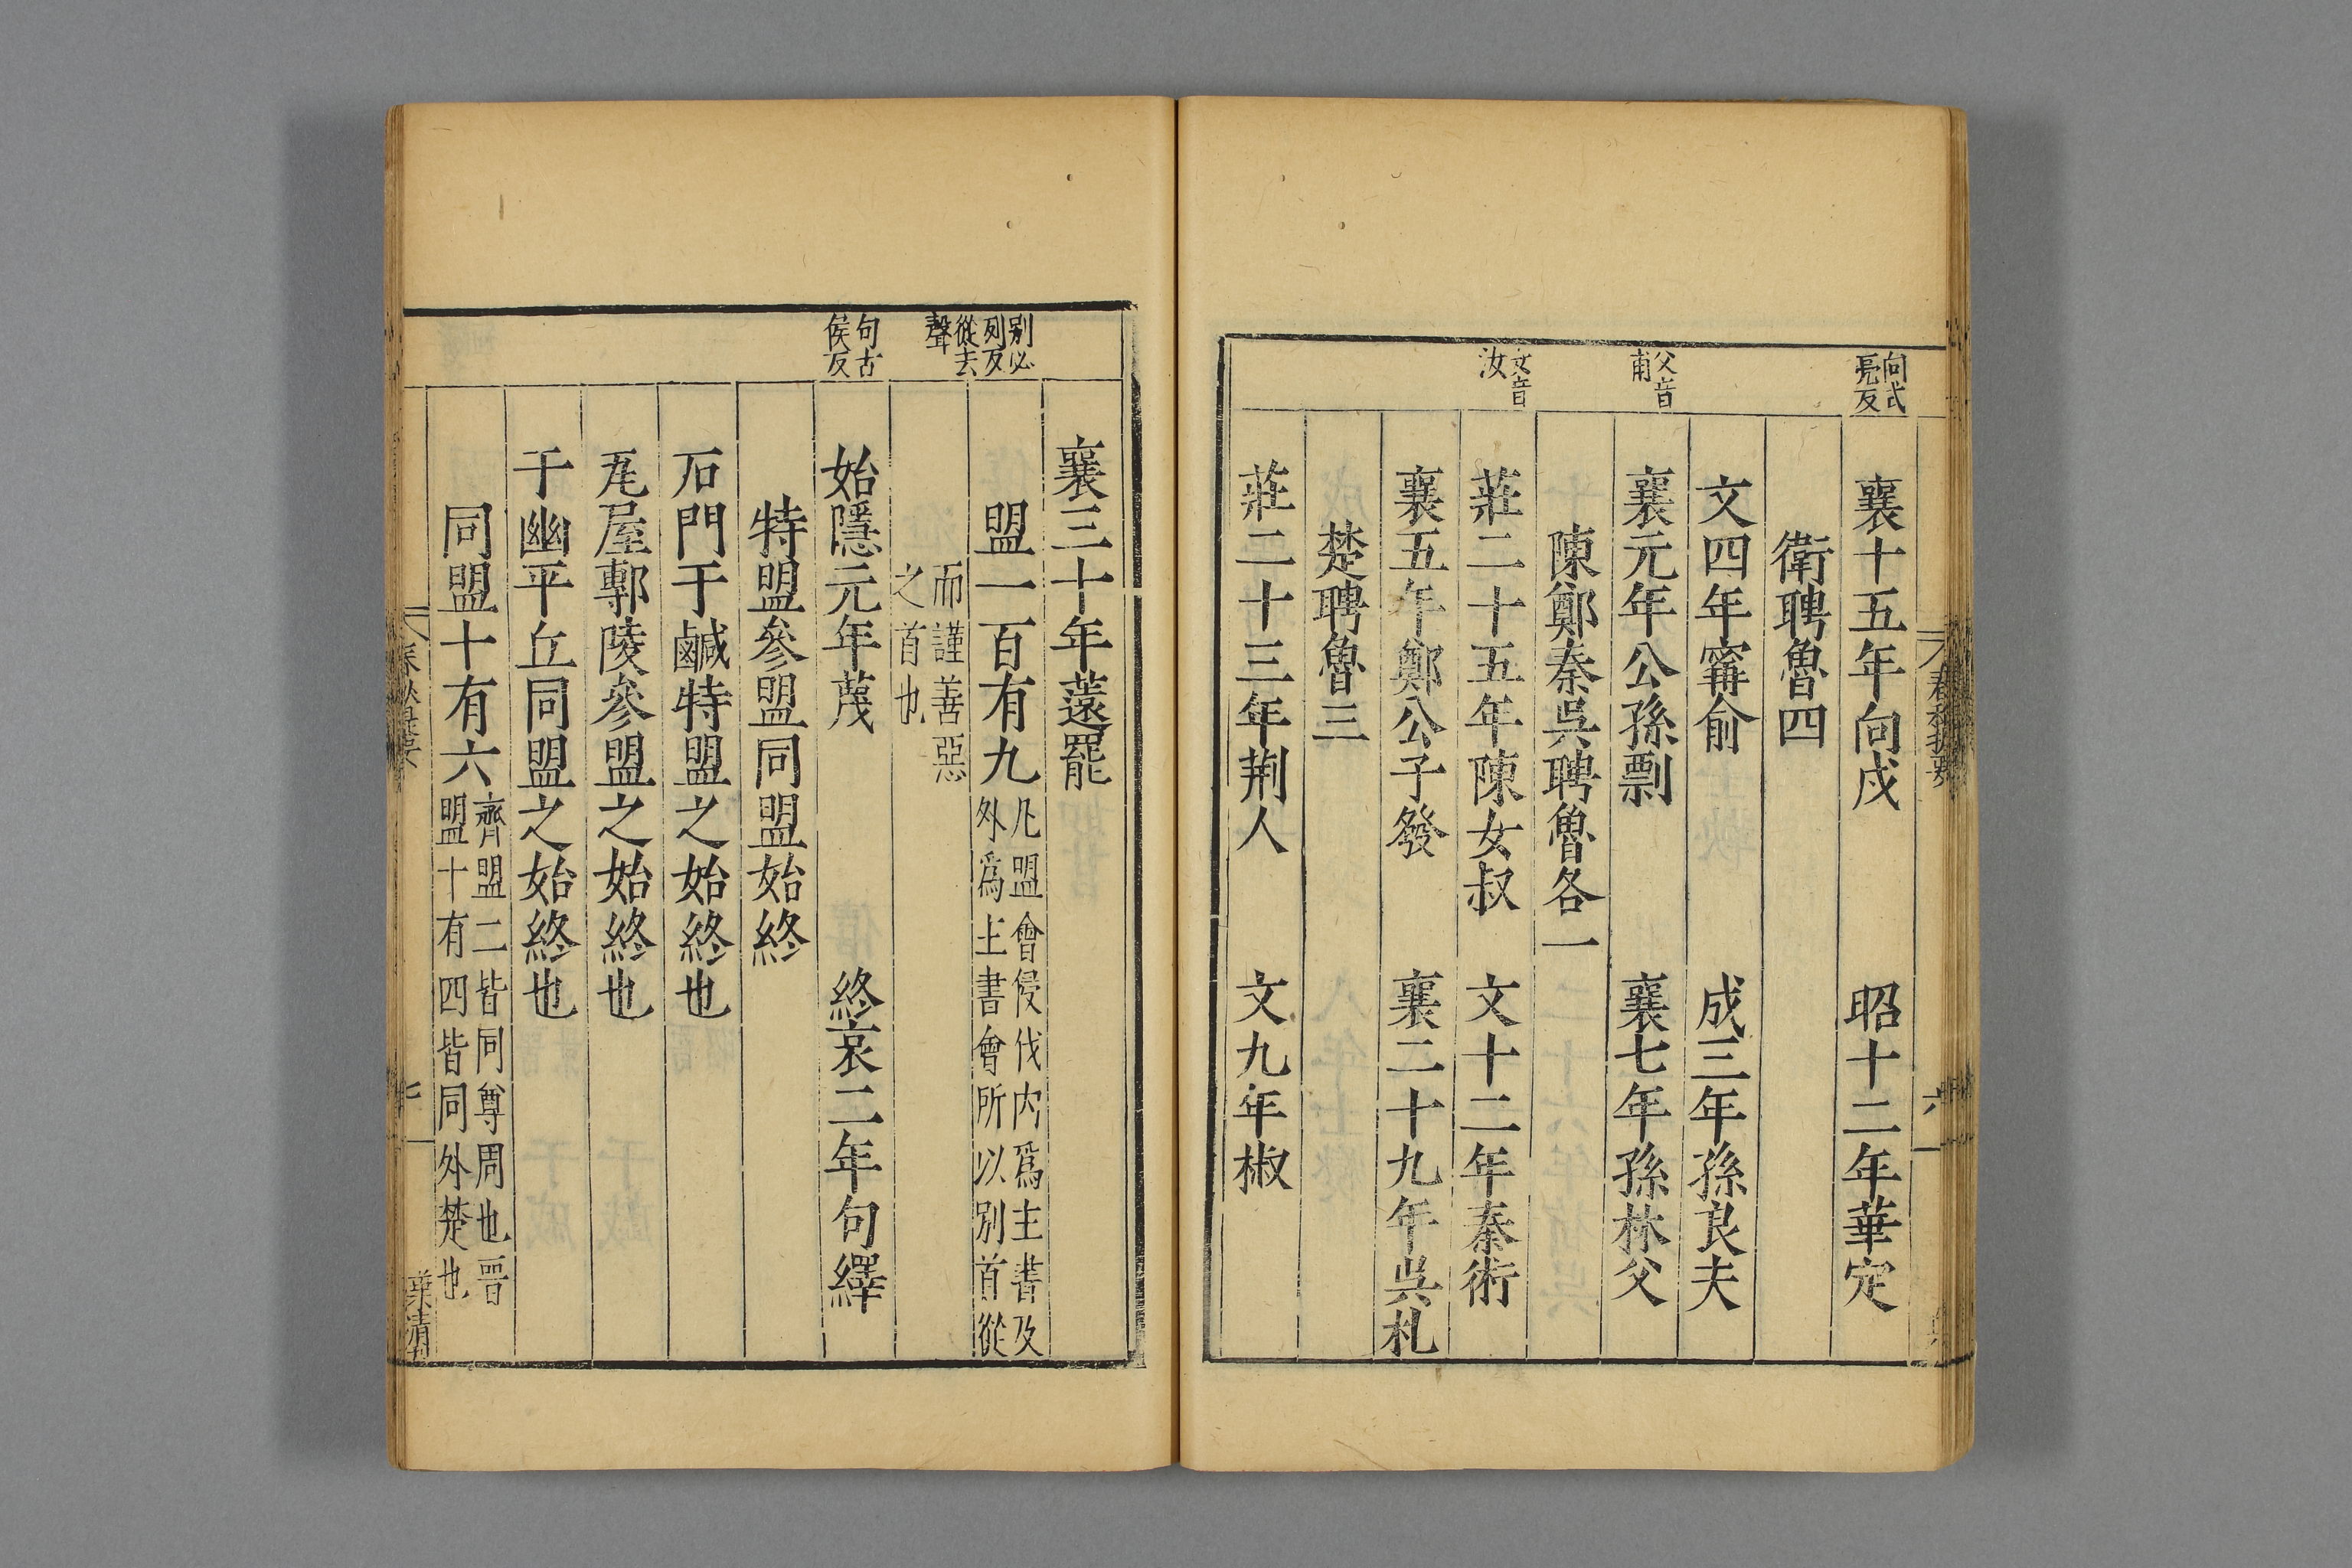 向式
亮反
父音
甫
女音
汝
襄十五年向戌　昭十二年華定
衛聘魯四
文四年甯俞　成三年孫良夫
襄元年公孫剽　襄七年孫林父
陳鄭秦吳聘魯各一
莊二十五年陳女叔　文十二年秦術
襄五年鄭公子發　襄二十九年吳札
楚聘魯三
莊二十三年荆人　文九年椒
春秋提要
六
别必
列反
從去
聲
句古
侯反
襄三十年薳罷
盟一百有九
凡盟會侵伐内爲主書及
外爲主書會所以别首從
而謹善惡
之首也
始隱元年蔑　終哀二年句繹
特盟參盟同盟始終
石門于鹹特盟之始終也
瓦屋鄟陵參盟之始終也
于幽平丘同盟之始終也
同盟十有六
齊盟二皆同尊周也晉
盟十有四皆同外楚也
春秋提要
七